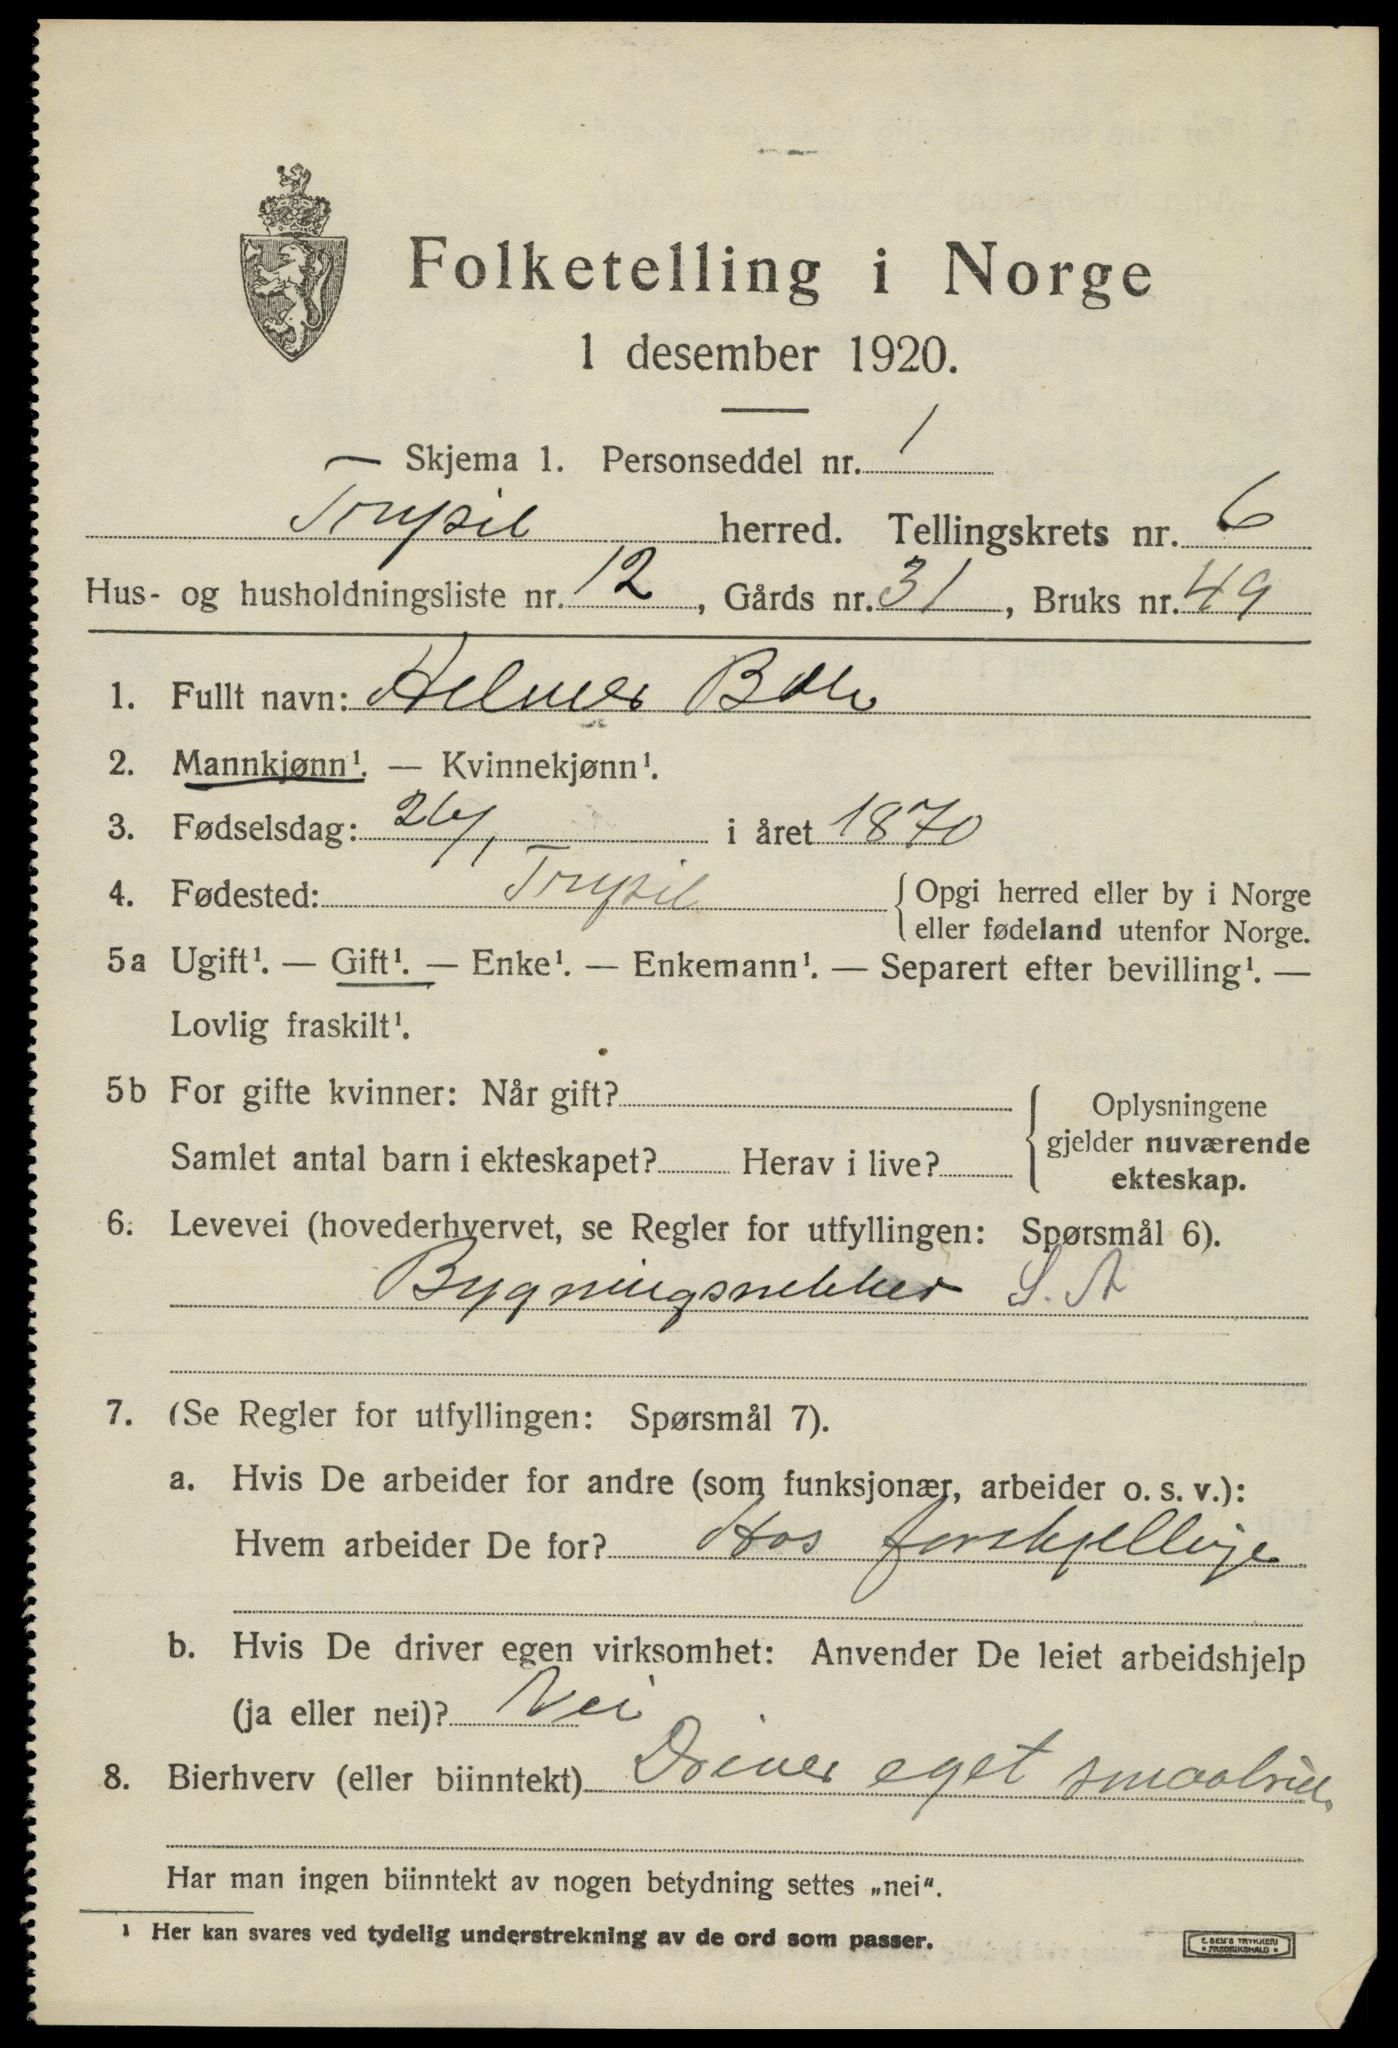 Folketelling i Norge
1 desember 1920.
Skjema 1. Personseddel nr. 1
Trysil herred. Tellingskrets nr. 6
Hus- og husholdningsliste nr. 12, Gårds nr. 31, Bruks nr. 49
1. Fullt navn: Helmer
2. Mannkjønn¹. — Kvinnekjønn¹.
3. Fødselsdag: i året 1870
4. Fødested: Trysil { Opgi herred eller by i Norge
eller fødeland utenfor Norge.
5a Ugift¹. — Gift¹. — Enke¹. — Enkemann¹. — Separert efter bevilling¹. —
Lovlig fraskilt¹.
5b For gifte kvinner: Når gift?
Samlet antal barn i ekteskapet? Herav i live?
{ Oplysningene
gjelder nuværende
ekteskap.
6. Levevei (hovederhvervet, se Regler for utfyllingen: Spørsmål 6).
Bygningsnekker S. A
7. (Se Regler for utfyllingen: Spørsmål 7).
a. Hvis De arbeider for andre (som funksjonær, arbeider o. s. v.):
Hvem arbeider De for? Hos forskjellige
b. Hvis De driver egen virksomhet: Anvender De leiet arbeidshjelp
(ja eller nei)? Nei
8. Bierhverv (eller biinntekt) Driver eget smaabruk.
Har man ingen biinntekt av nogen betydning settes „nei“.
¹ Her kan svares ved tydelig understrekning av de ord som passer.
E. SEM'S TRYKKERI
• FREDRIKSHALD •